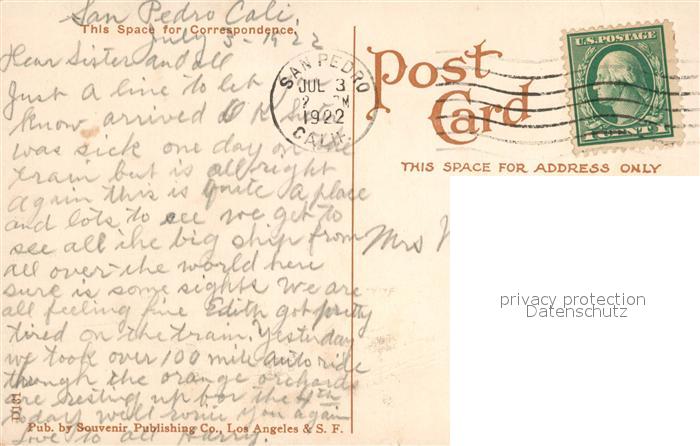 San Pedro Cali,
This Space for Correspondence,
July 3-1922
Dear Sister and all
Just a line to let
know arrived O K
was sick one day on the
train but is all right
again this is quite a place
and lots to see we get to
see all the big ship from
all over the world here
sure is some sights We are
all feeling fine Edith got pretty
tired on the train. Yesterday
we took over 100 mile auto ride
through the orange orchards
are resting up for the 4th
today will you again
Love to all Harry.
Pub. by Souvenir Publishing Co., Los Angeles & S. F.
SAN PEDRO
JUL 3
1922
CALIF.
Post
Card
U.S. POSTAGE
1 CENT 1
THIS SPACE FOR ADDRESS ONLY
Mrs
privacy protection
Datenschutz